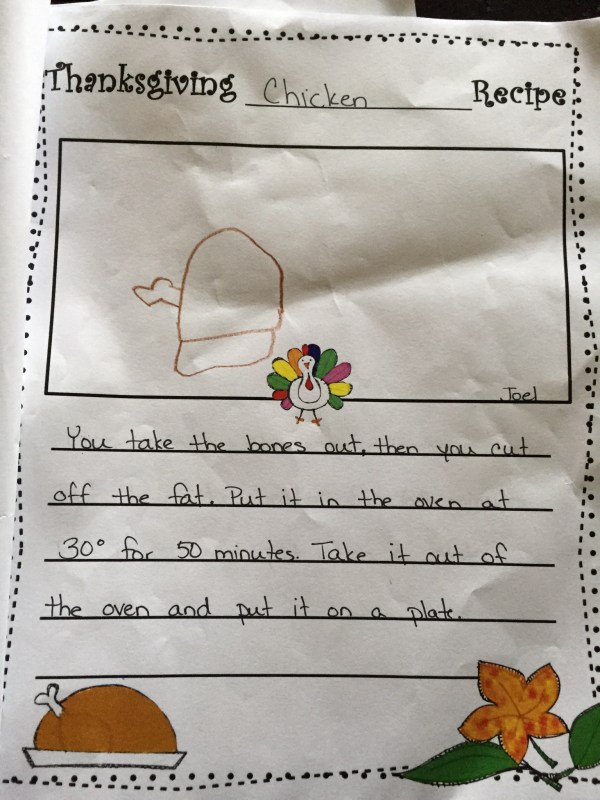 Thanksgiving Chicken Recipe
Joel
You take the bones out, then you cut
off the fat. Put it in the oven at
30° for 50 minutes. Take it out of
the oven and put it on a plate.